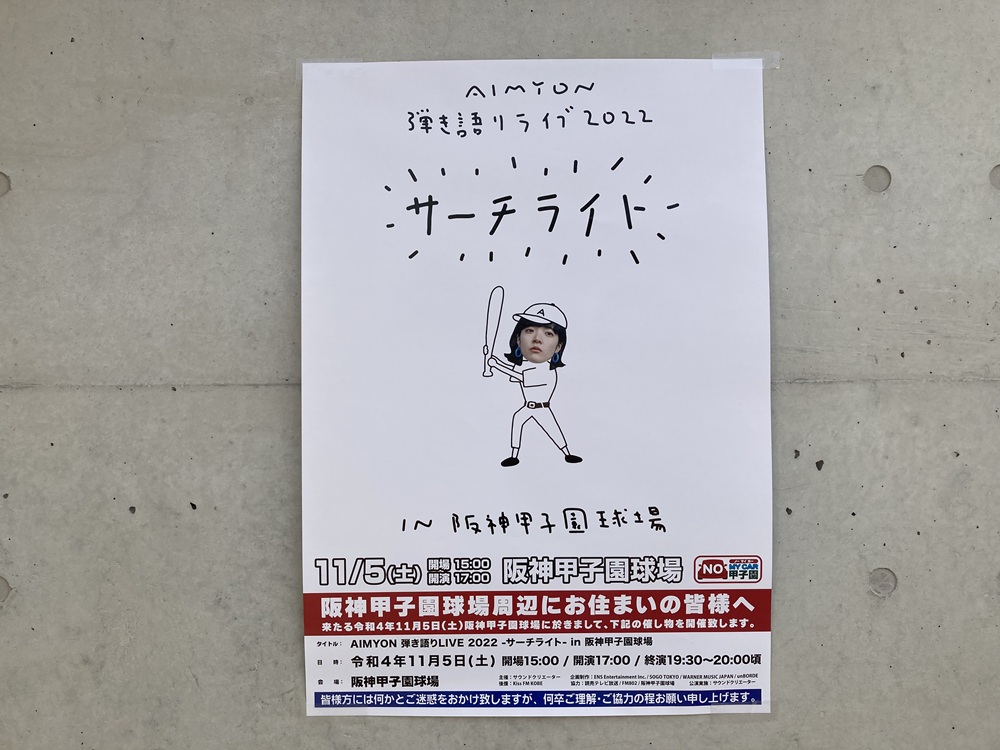 AIMYON
弾き語りライブ2022
サーチライト
A
IN 阪神甲子園球場
11/5(土) 開場 15:00 開演 17:00 阪神甲子園球場
NO MY CAR 甲子園
阪神甲子園球場周辺にお住まいの皆様へ
来たる令和4年11月5日(土)阪神甲子園球場に於きまして、下記の催し物を開催致します。
タイトル: AIMYON 弾き語りLIVE 2022 -サーチライト- in 阪神甲子園球場
日 時: 令和4年11月5日(土) 開場15:00 / 開演17:00 / 終演19:30〜20:00頃
会 場: 阪神甲子園球場
主催:サウンドクリエーター 企画制作:ENS Entertainment Inc. / SOGO TOKYO / WARNER MUSIC JAPAN / unBORDE
後援:Kiss FM KOBE 協力:読売テレビ放送 / FM802 / 阪神甲子園球場 公演実施:サウンドクリエーター
皆様方には何かとご迷惑をおかけ致しますが、何卒ご理解・ご協力の程お願い申し上げます。